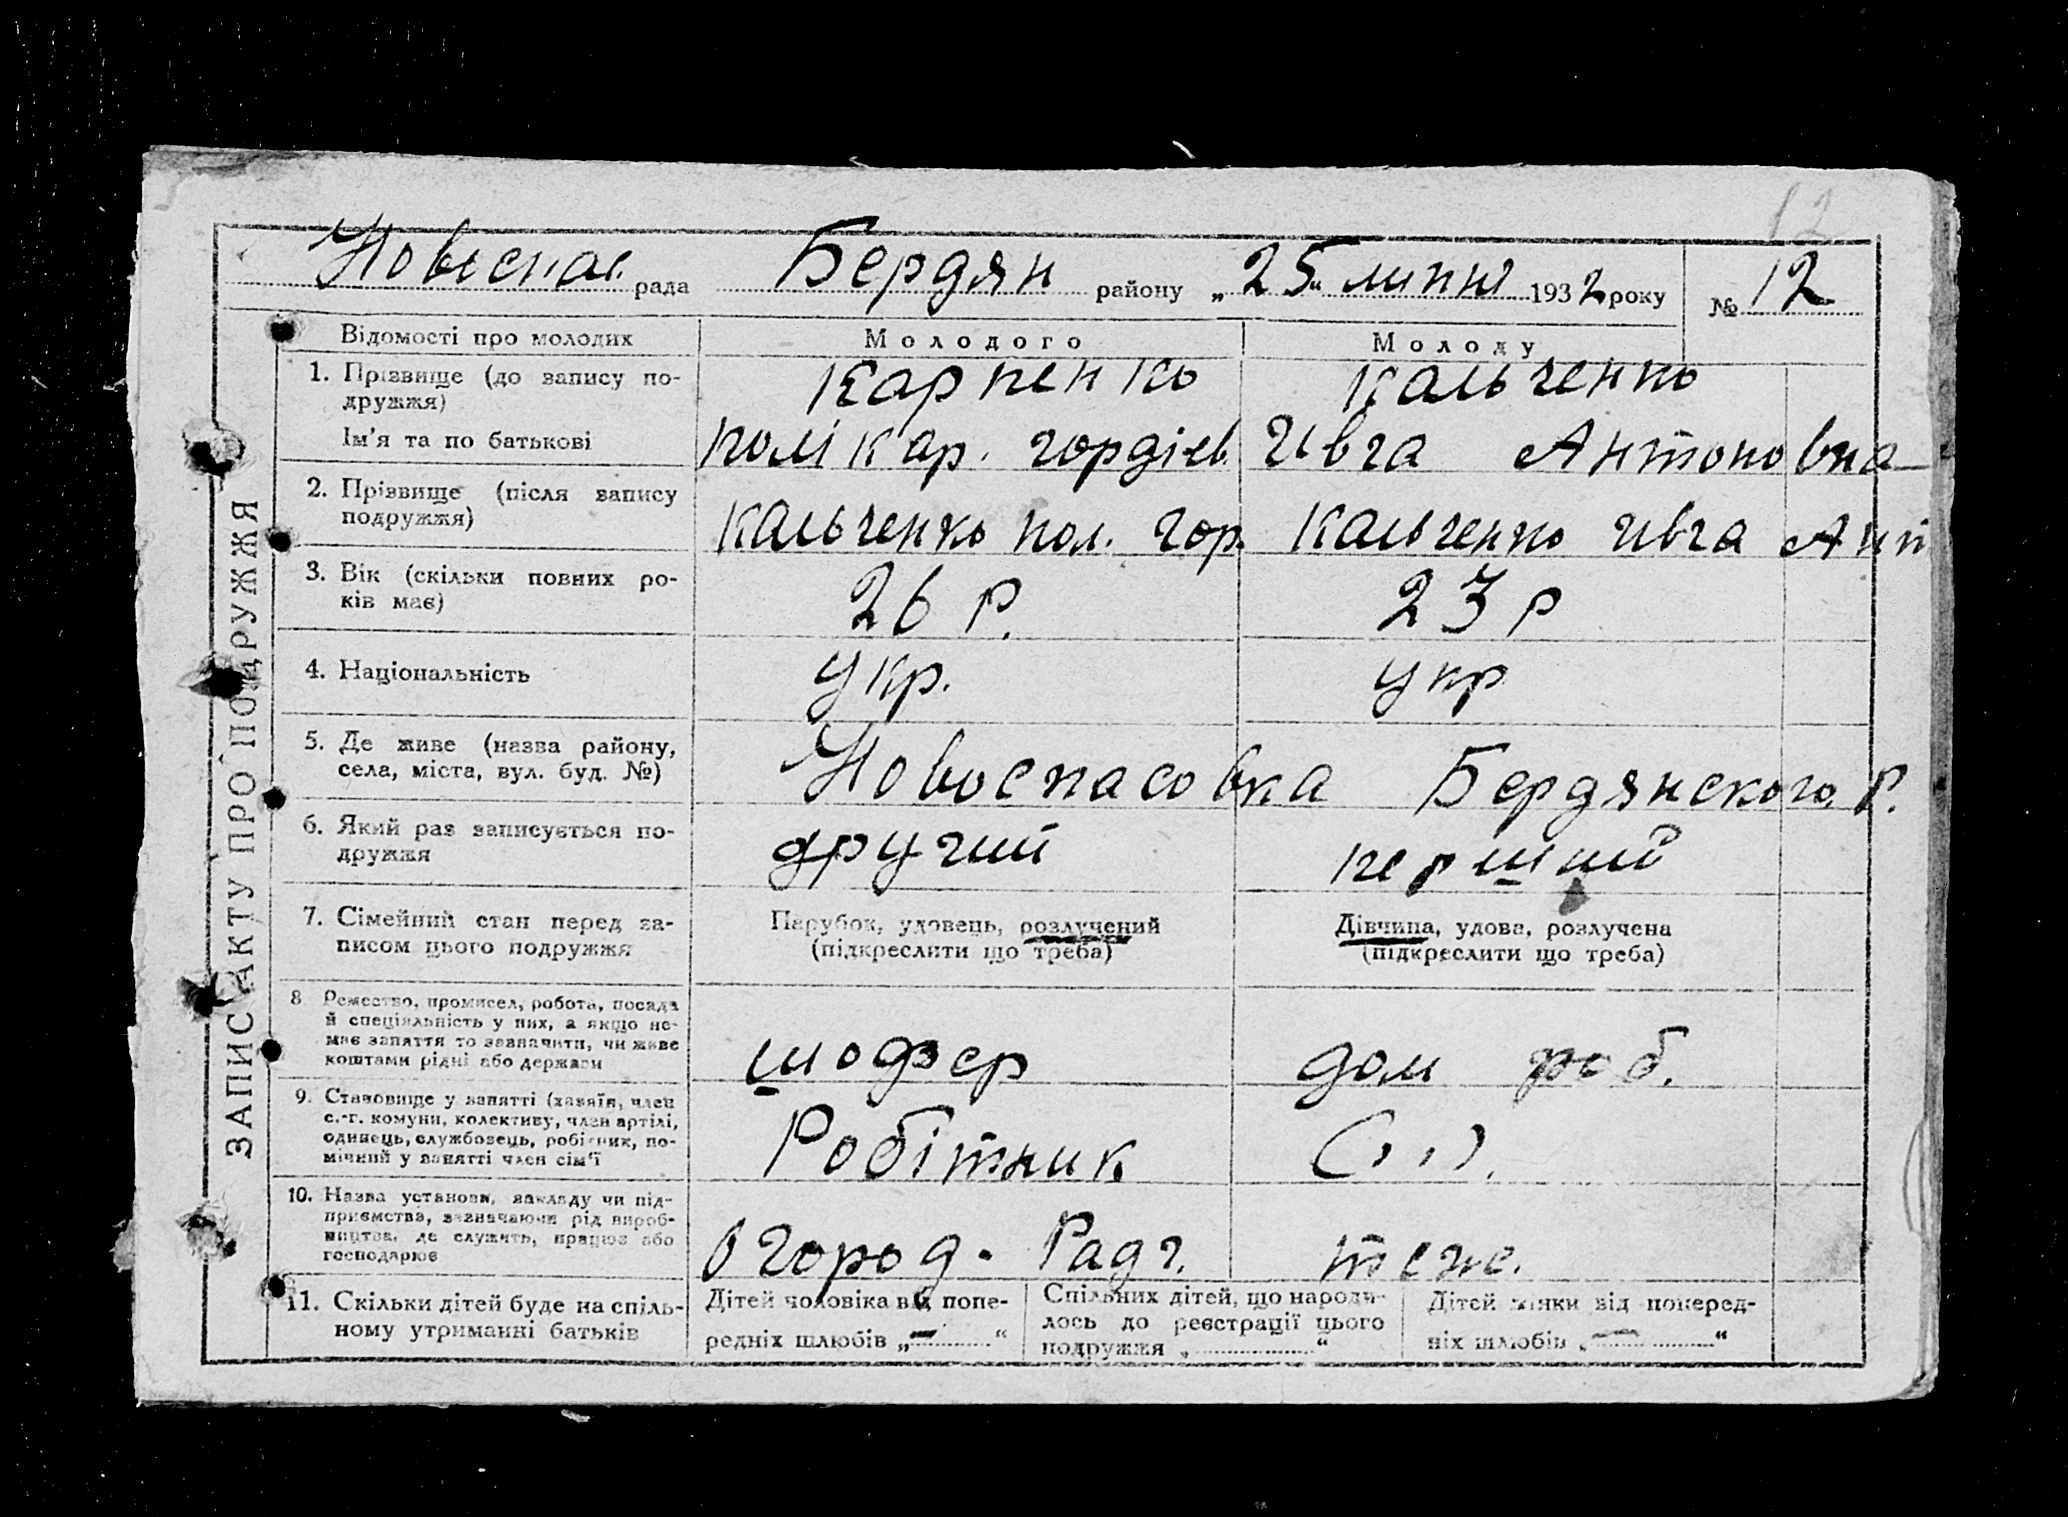 12
Новоспас. рада Бердян району „25“ липня 1932 року № 12
ЗАПИС АКТУ ПРО ПОДРУЖЖЯ
Відомості про молодих Молодого Молоду
1. Прізвище (до запису по- Карпенко Кальченко
дружжя)
Ім'я та по батькові Полікар. Гордієв. Ивга Антоновна
2. Прізвище (після запису
подружжя) Кальченко Пол. Гор. Кальченко Ивга Ант
3. Вік (скільки повних ро-
ків має) 26 р. 23 р
4. Національність укр. укр
5. Де живе (назва району,
села, міста, вул. буд. №) Новоспасовка Бердянского р.
6. Який раз записується по-
дружжя другий перший
7. Сімейний стан перед за- Парубок, удовець, розлучений Дівчина, удова, розлучена
писом цього подружжя (підкреслити що треба) (підкреслити що треба)
8 Ремество, промисел, робота, посада
й спеціяльність у них, а якщо не-
має заняття то зазначити, чи живе
коштами рідні або держави шофер дом роб.
9. Становище у занятті (хазяїн, член
с.-г. комуни, колективу, член артілі,
одинець, службовець, робітник, по-
мічний у занятті член сім'ї Робітник (, , ).
10. Назва установи, закладу чи під-
приємства, зазначаючи рід вироб-
ництва, де служить, працює або
господарює Огород. Радг. теже.
11. Скільки дітей буде на спіль-
ному утриманні батьків
Дітей чоловіка від попе-
редніх шлюбів „—“
Спільних дітей, що народи-
лось до реєстрації цього
подружжя „ “
Дітей жінки від поперед-
ніх шлюбів „—“